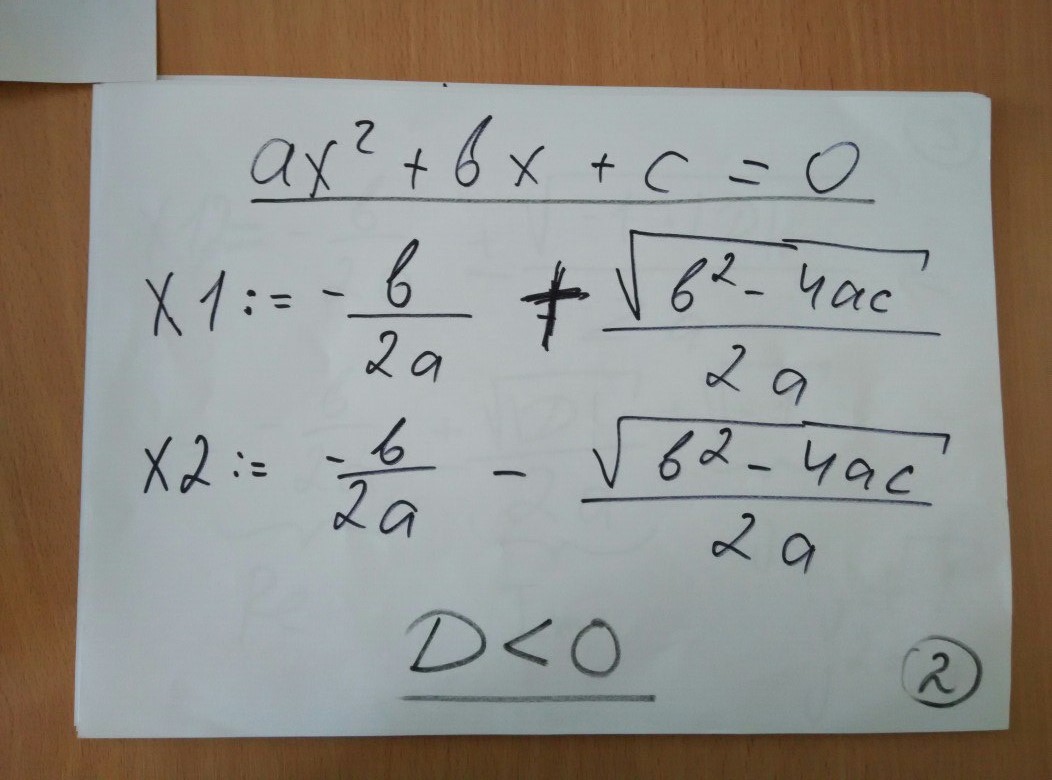 ax² + bx + c = 0
x1 := - b/2a + √(b² - 4ac)/2a
x2 := - b/2a - √(b² - 4ac)/2a
D < 0
2